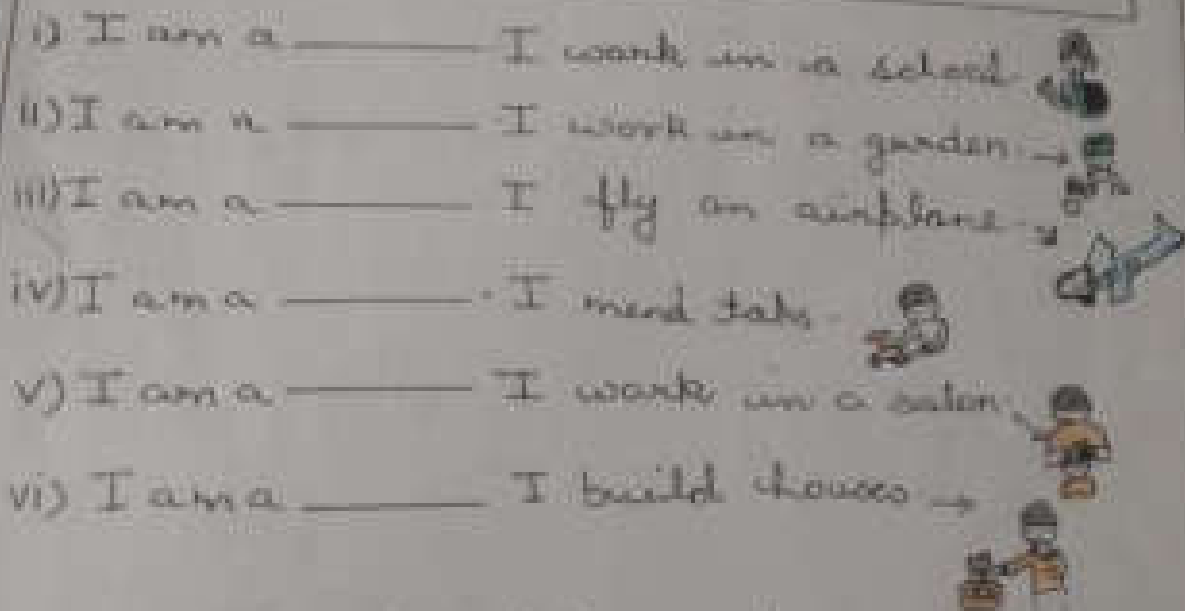 i) I am a ________ I work in a school
ii) I am a ________ I work in a garden. →
iii) I am a ________ I fly an airplane.
iv) I am a ________. I mend taps.
v) I am a ________ I work in a salon.
vi) I am a ________ I build houses →